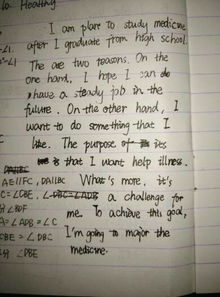 10. Healthy
I am plare to study medicine
after I graduate from high school.
The are two reasons. On the
one hand, I hope I can do
have a steady job in the
future. On the other hand, I
want to do something that I
like. The purpose of its
is that I want help illness.
AE∥FC, DA∥BC What's more, it's
C=∠CBE, ∠DBC=∠ADB a challenge for
∠BDF me. To achieve this goal,
A=∠ADB=∠C
CBE=∠DBC I'm going to major the
∠DBE medicine.